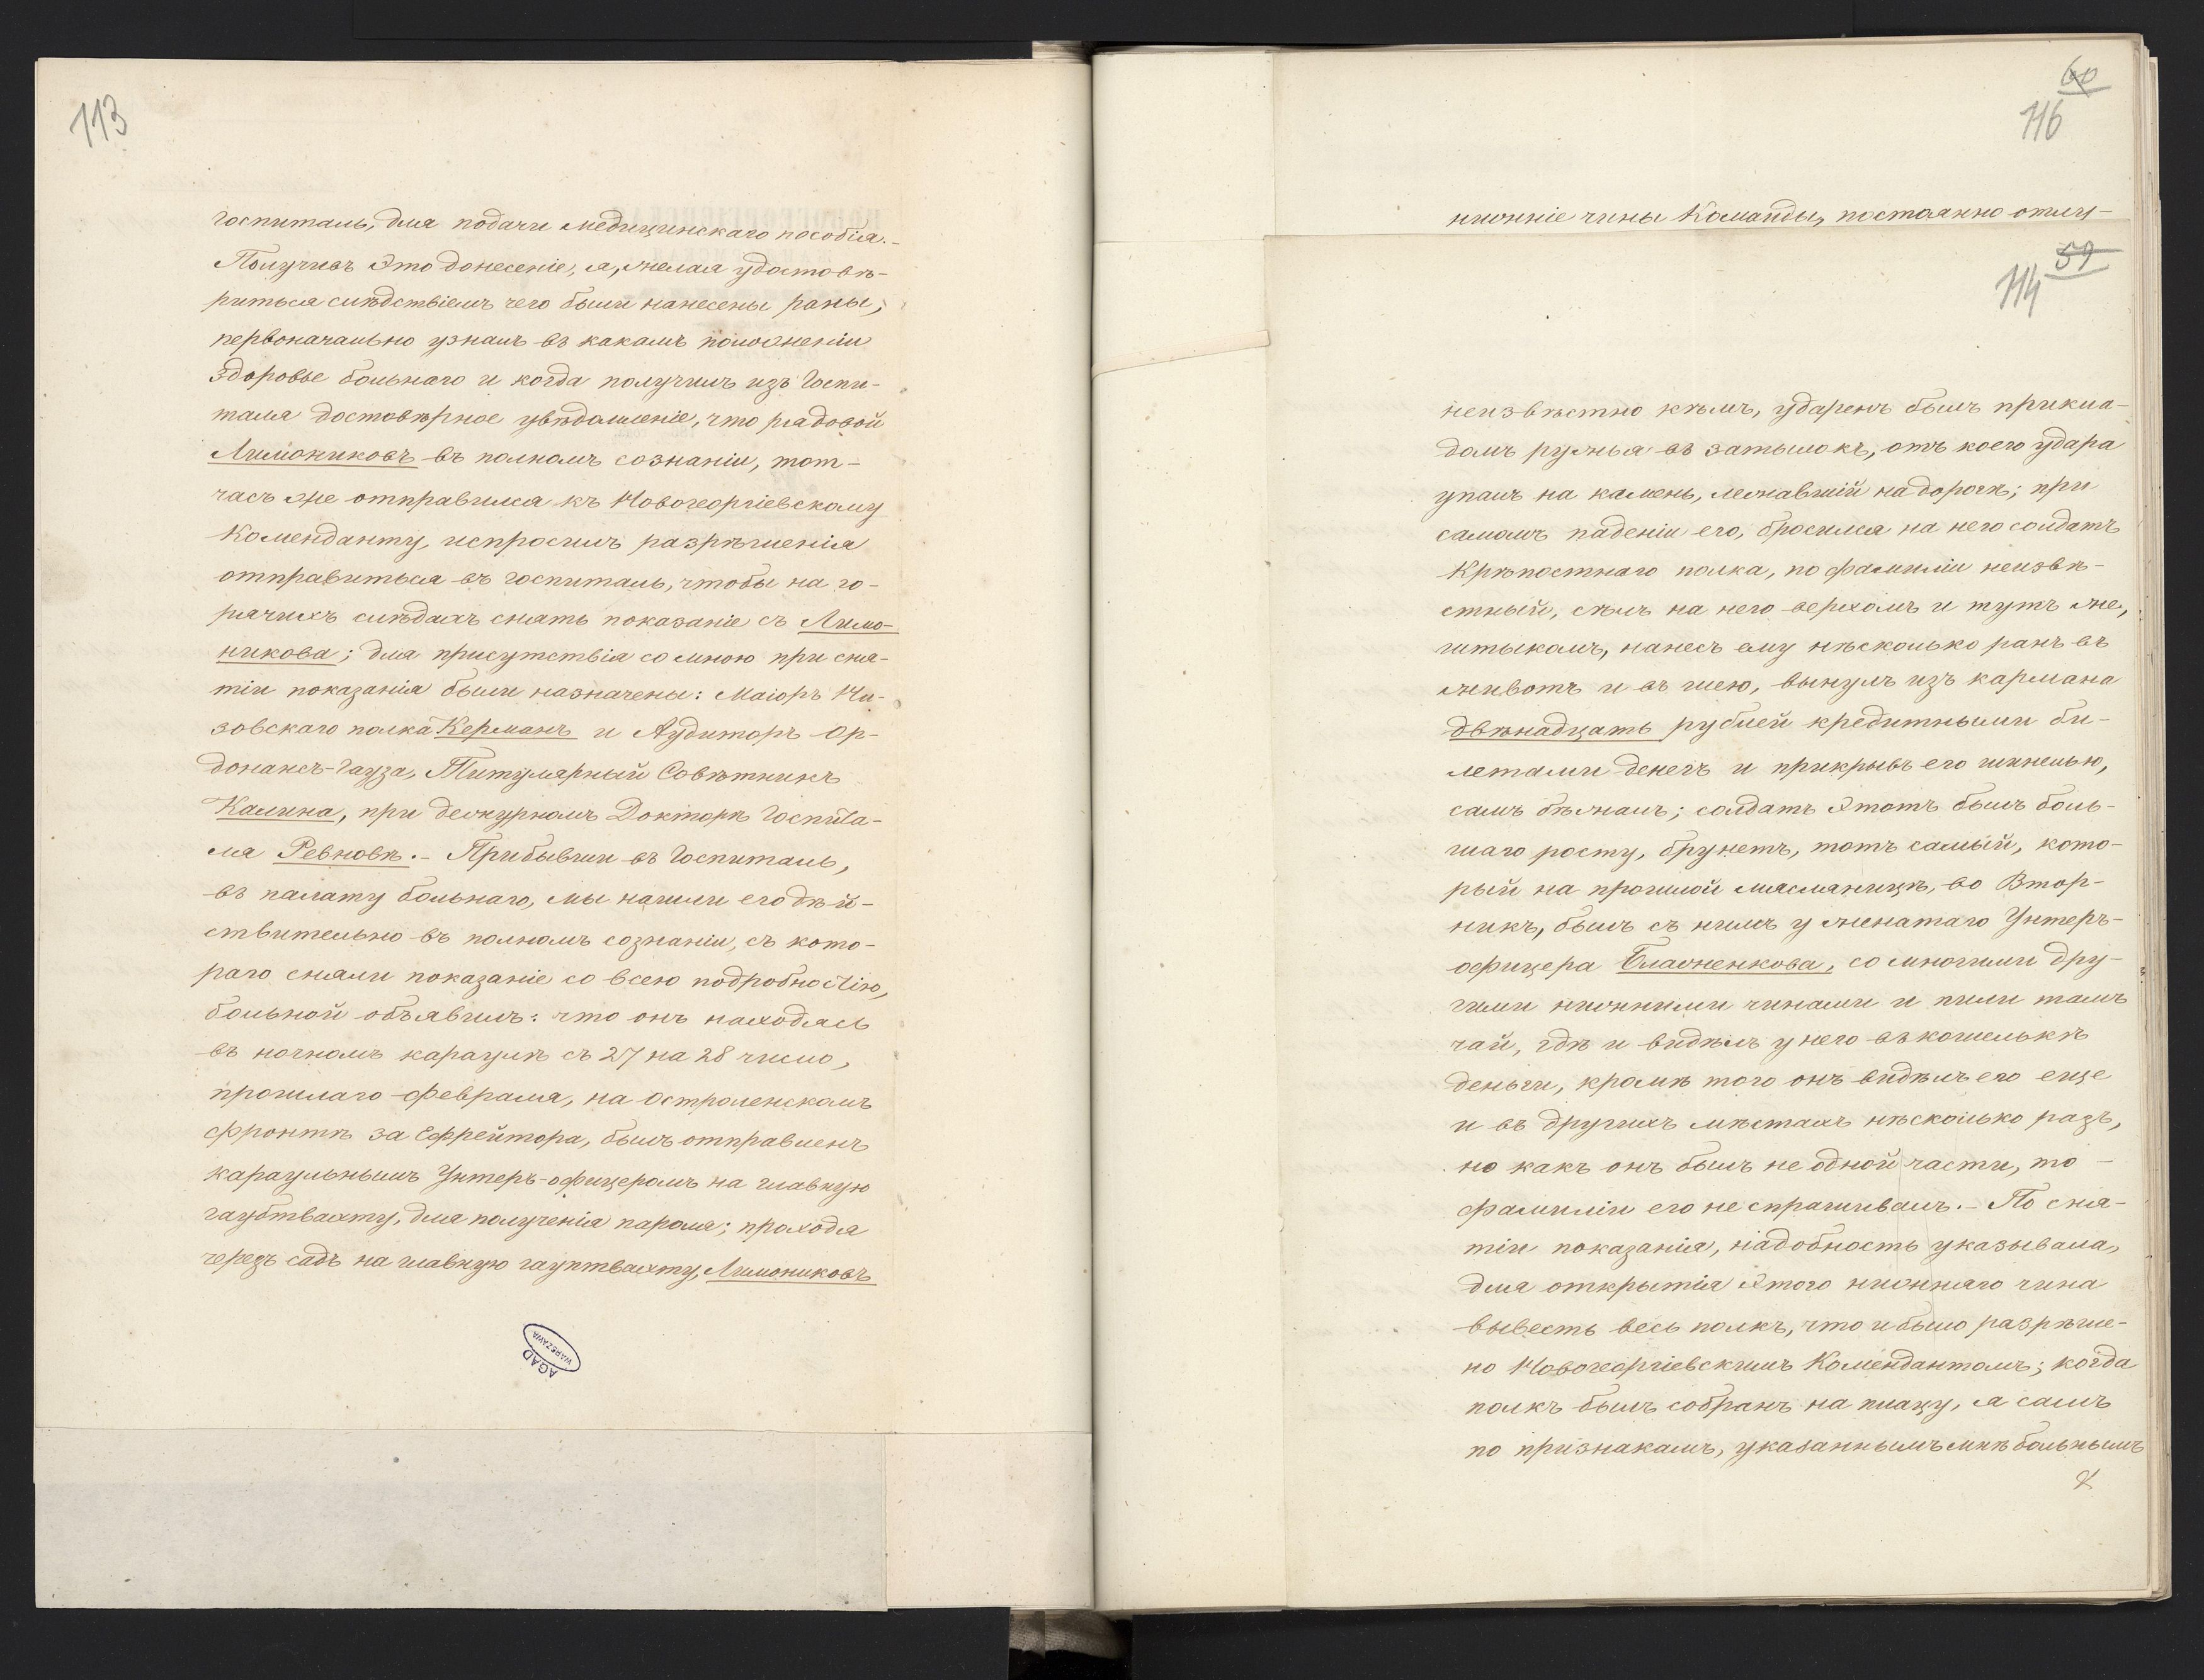 113
госпиталь, для подачи медицинскаго пособія.-
Получивъ это донесеніе, я, желая удостовѣ-
риться слѣдствіемъ чего были нанесены раны,
первоначально узналъ въ какомъ положеніи
здоровье больнаго и когда получилъ изъ Госпи-
таля достовѣрное увѣдомленіе, что рядовой
Лимониковъ въ полномъ сознаніи, тот-
часъ же отправился къ Новогеоргіевскому
Коменданту, испросилъ разрѣшенія
отправиться въ госпиталь, чтобы на го-
рячихъ слѣдахъ снять показаніе съ Лимо-
никова; для присутствія со мною при сня-
тіи показанія были назначены: Маіоръ Ни-
зовскаго полка Керманъ и Аудиторъ Ор-
донансъ-Гауза, Титулярный Совѣтникъ
Калина, при дежурномъ Докторѣ Госпита-
ля Ревновѣ.- Прибывши въ Госпиталь,
въ палату больнаго, мы нашли его дѣй-
ствительно въ полномъ сознаніи, съ кото-
раго сняли показаніе со всею подробностію,
больной объявилъ: что онъ находясь
въ ночномъ караулѣ съ 27 на 28 число,
прошлаго февраля, на Остроленскомъ
фронтѣ за Ефрейтора, былъ отправленъ
караульнымъ Унтеръ-офицеромъ на главную
гаубтвахту, для полученія пароля; проходя
черезъ садъ на главную гауптвахту, Лимониковъ
AGAD
WARSZAWA
60
116
нижніе чины Команды, постоянно отлу-
59
114
неизвѣстно кѣмъ, ударенъ былъ прикла-
домъ ружья въ затылокъ, отъ коего удара
упалъ на камень, лежавшій на дорогѣ; при
самомъ паденіи его, бросился на него солдатъ
Крѣпостнаго полка, по фамиліи неизвѣ-
стный, сѣлъ на него верхомъ и тутъ же,
штыкомъ, нанесъ ему нѣсколько ранъ въ
животъ и въ шею, вынулъ изъ кармана
двѣнадцать рублей кредитными би-
летами денегъ и прикрывъ его шинелью,
самъ бѣжалъ; солдатъ этотъ былъ боль-
шаго росту, брунетъ, тотъ самый, кото-
рый на прошлой масляницѣ, во Втор-
никъ, былъ съ нимъ у женатаго Унтеръ-
офицера Блаженкова, со многими дру-
гими нижними чинами и пили тамъ
чай, гдѣ и видѣлъ у него въ кошелькѣ
деньги, кромѣ того онъ видѣлъ его еще
и въ другихъ мѣстахъ нѣсколько разъ,
но какъ онъ былъ не одной части, то
фамиліи его не спрашивалъ.- По сня-
тіи показанія, надобность указывала,
для открытія этого нижняго чина
вывесть весь полкъ, что и было разрѣше-
но Новогеоргіевскимъ Комендантомъ; когда
полкъ былъ собранъ на плацу, я самъ
по признакамъ, указаннымъ мнѣ больнымъ